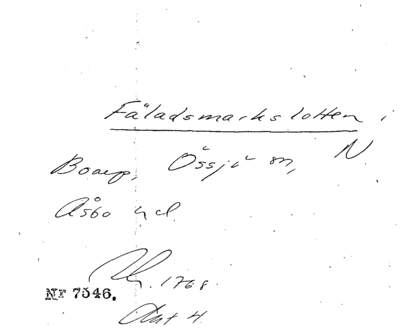 Fäladsmarkslotten i
Boarp, Össjö sn, N.
Åsbo hd.
1768.
Nr 7546.
Akt 4.